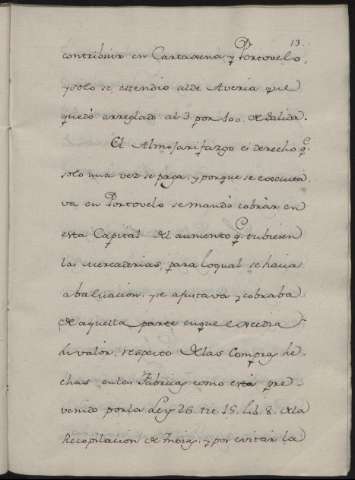 13.
contribuir en Cartagena y Portovelo,
y solo se estendio al de Averia que
quedó arreglado al 3 por 100. de salida.
El Almojarifazgo es derecho q.e
solo una vez se paga, y porque se
va en Portovelo se mandó cobrar en
esta Capital del aumento q.e tubiesen
las mercaderias, para lo qual se hacia
abaluacion, y se ajustava y cobraba
de aquella parte en que excedia
su valor, respecto de las compras he
chas en las Fabricas como esta pre
venido por la Ley 26. tit. 15. Lib. 8. de la
Recopilacion de Indias, y por evitar la